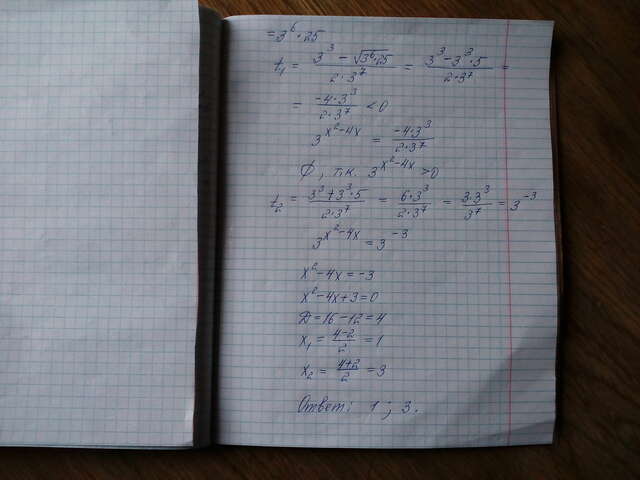 = 3⁶·25
t₁ = (3³ - √(3⁶·25))/(2·3⁷) = (3³ - 3³·5)/(2·3⁷) =
= (-4·3³)/(2·3⁷) < 0
3^(x²-4x) = (-4·3³)/(2·3⁷)
∅, т.к. 3^(x²-4x) > 0
t₂ = (3³ + 3³·5)/(2·3⁷) = (6·3³)/(2·3⁷) = (3·3³)/3⁷ = 3⁻³
3^(x²-4x) = 3⁻³
x² - 4x = -3
x² - 4x + 3 = 0
D = 16 - 12 = 4
x₁ = (4-2)/2 = 1
x₂ = (4+2)/2 = 3
Ответ: 1; 3.